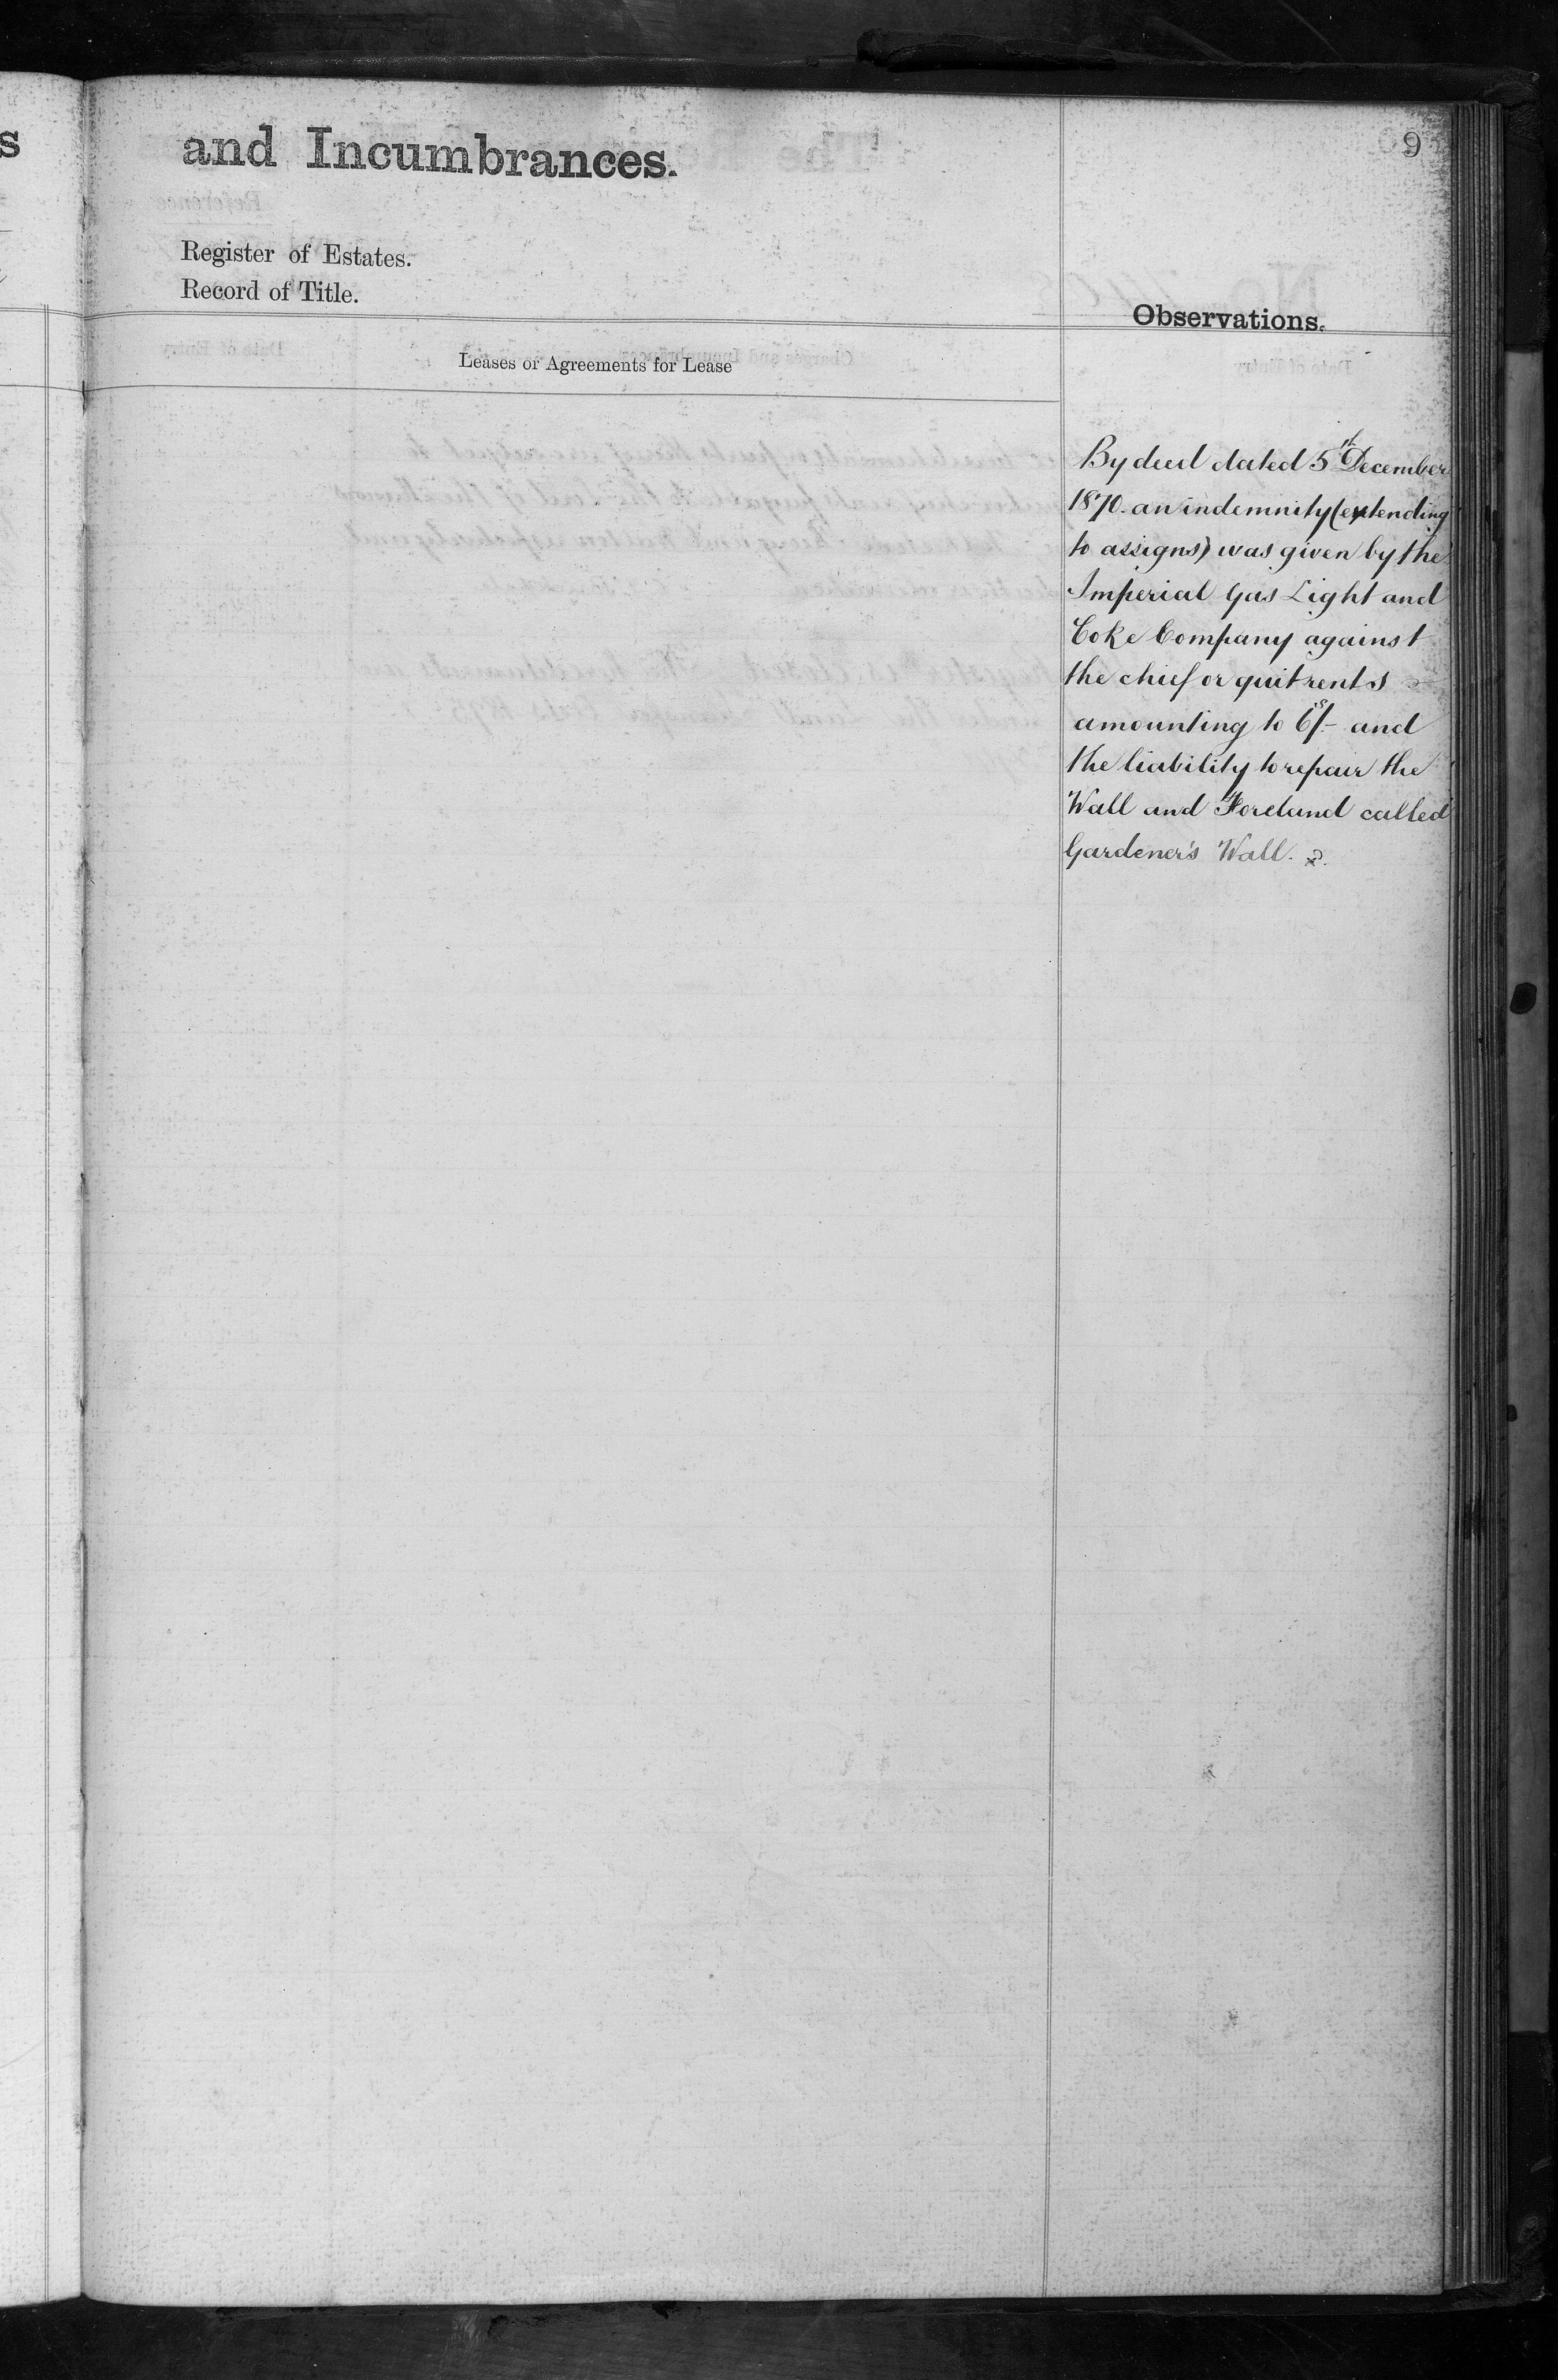 s
and Incumbrances.
9
Register of Estates.
Record of Title.
Observations.
Leases or Agreements for Lease
By deed dated 5th December
1870. an indemnity (extending
to assigns) was given by the
Imperial Gas Light and
Coke Company against
the chief or quit rents
amounting to 6s/- and
the liability to repair the
Wall and Foreland called
Gardener's Wall.